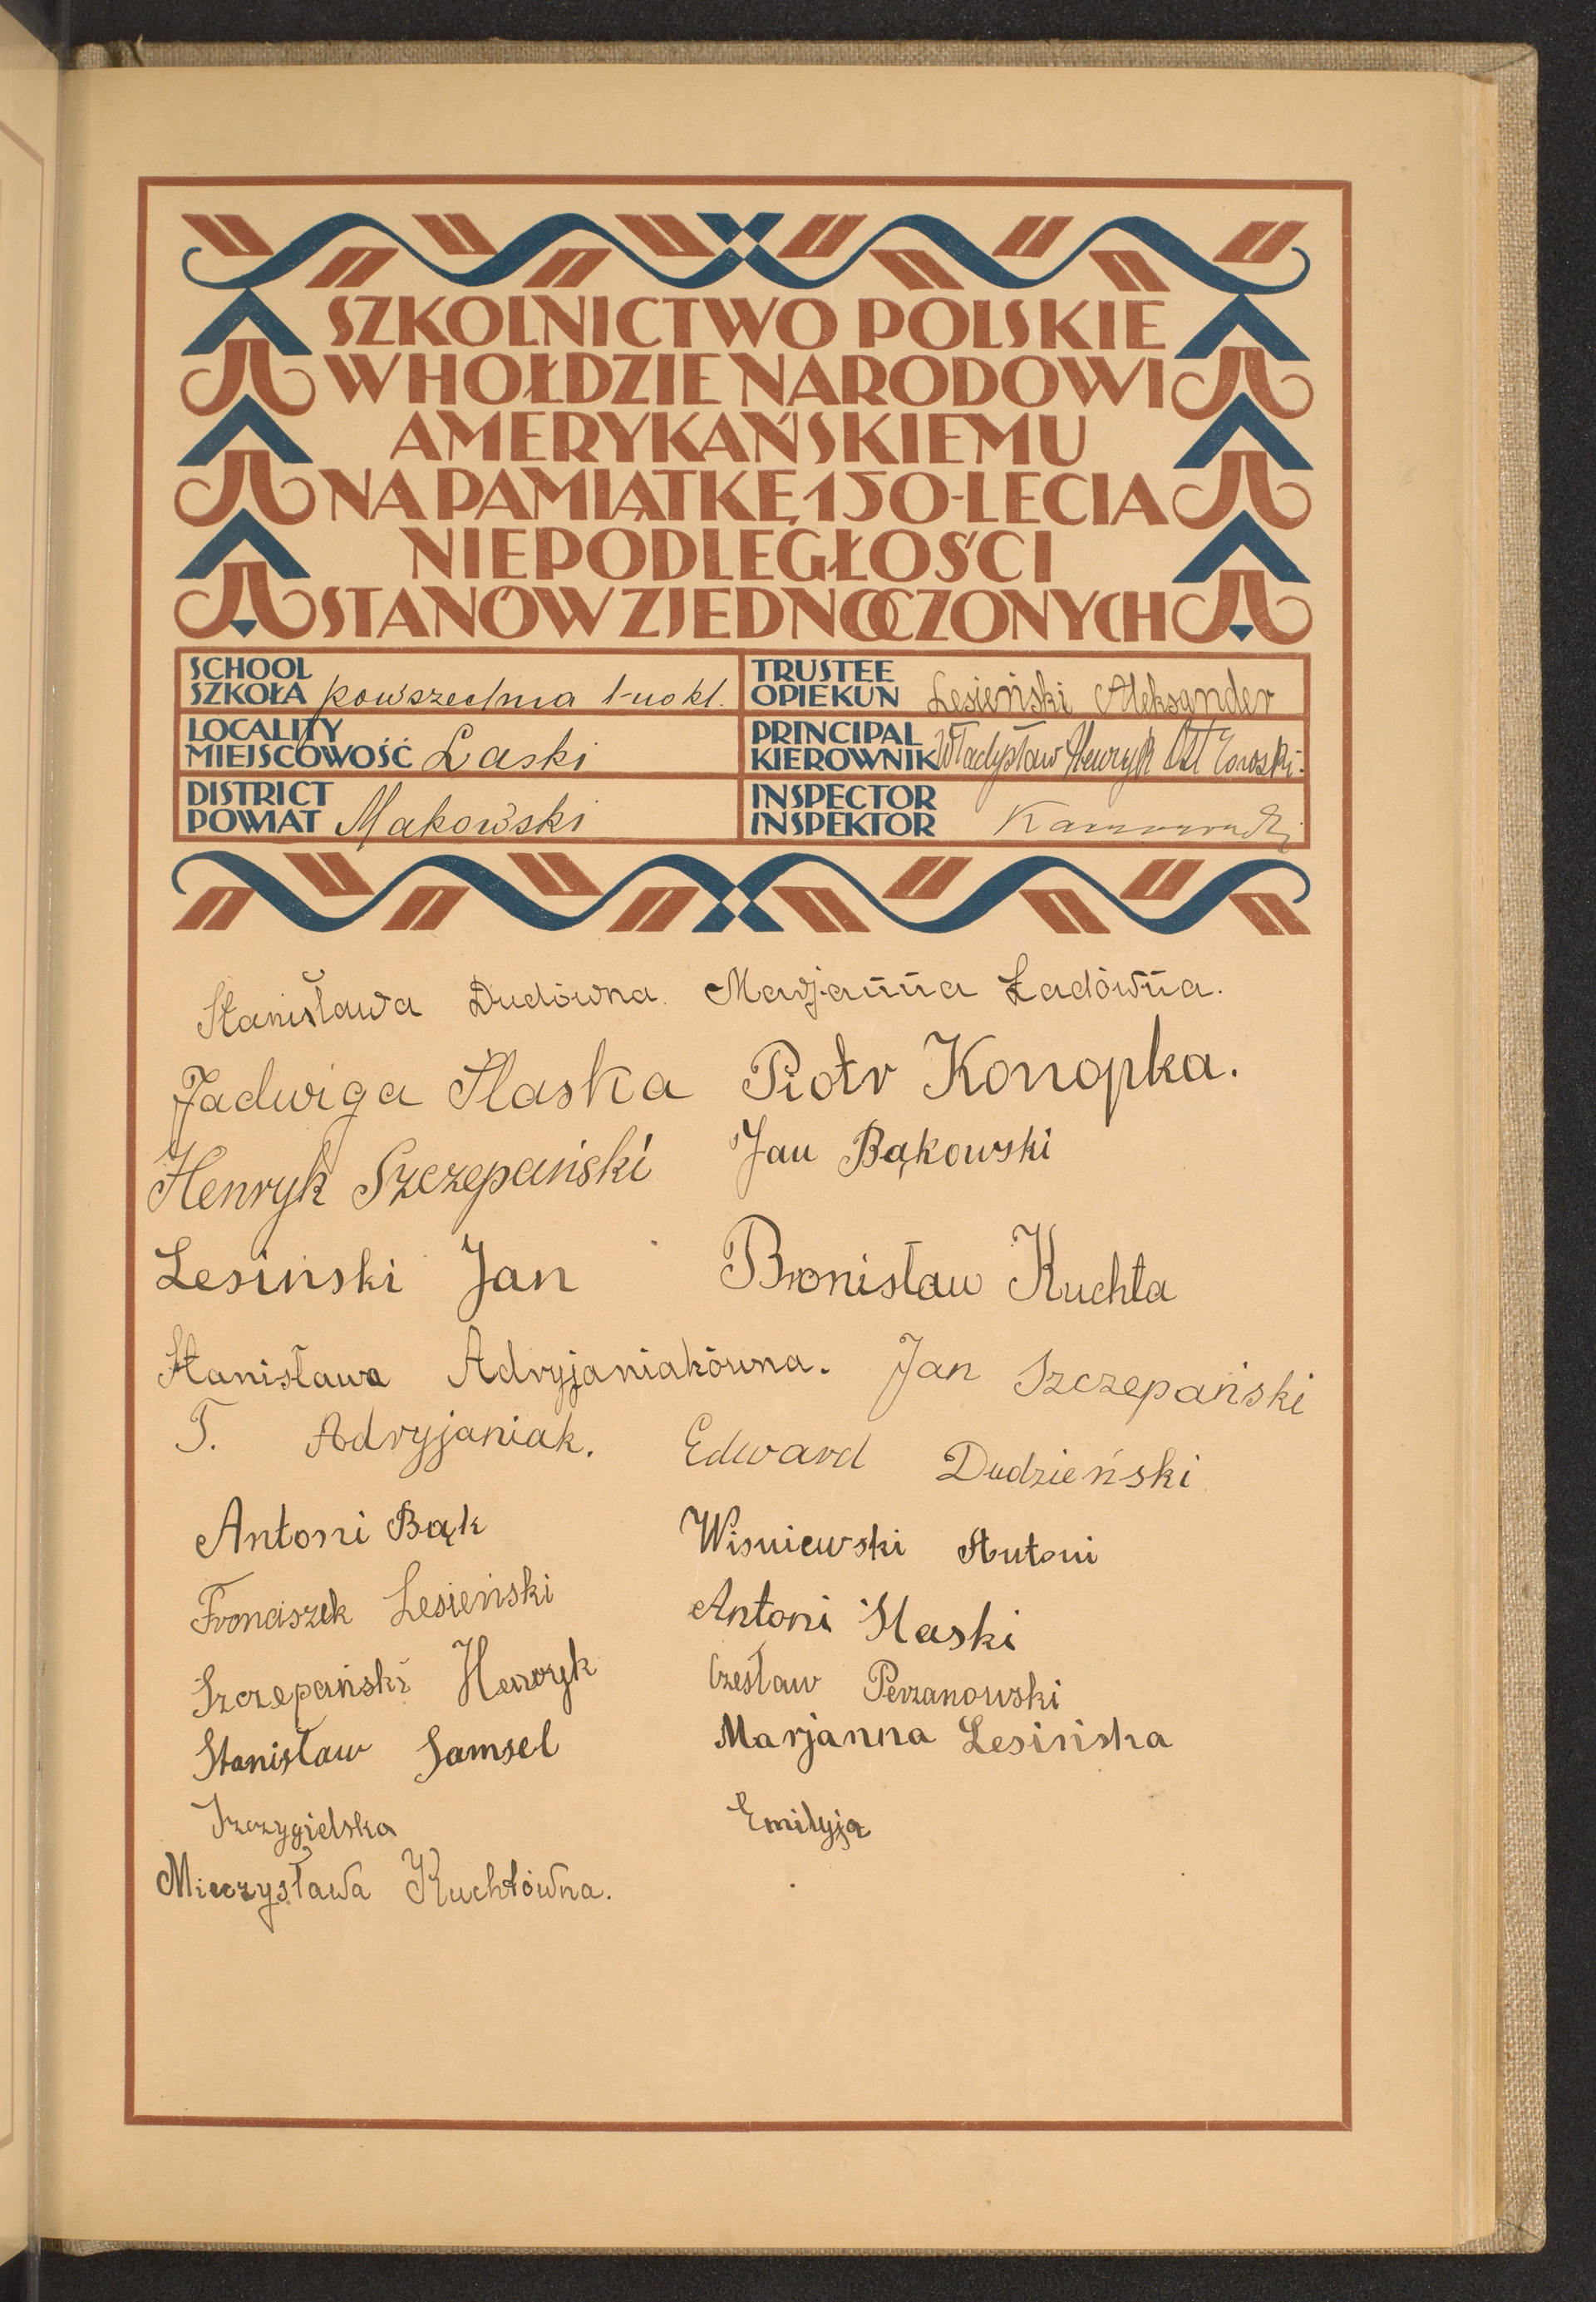 SZKOLNICTWO POLSKIE
W HOŁDZIE NARODOWI
AMERYKAŃSKIEMU
NA PAMIĄTKĘ 150-LECIA
NIEPODLEGŁOŚCI
STANÓW ZJEDNOCZONYCH
SCHOOL
SZKOŁA powszechna 1-no kl.
TRUSTEE
OPIEKUN Lesieński Aleksander
LOCALITY
MIEJSCOWOŚĆ Laski
PRINCIPAL
KIEROWNIK Władysław Henryk
DISTRICT
POWIAT Makowski
INSPECTOR
INSPEKTOR
Stanisława Dudówna. Marjanna Ładówna.
Jadwiga Ślaska Piotr Konopka.
Henryk Szczepański Jan Bąkowski
Lesiński Jan Bronisław Kuchta
Stanisława Adryjaniakówna. Jan Szczepański
T. Adryjaniak. Edward Dudzieński
Antoni Bąk Wisniewski Antoni
Franciszek Lesieński Antoni Ślaski
Szczepański Henryk Czesław Perzanowski
Stanisław Samsel Marjanna Lesińska
Szczygielska Emilyja
Mieczysława Kuchtówna.